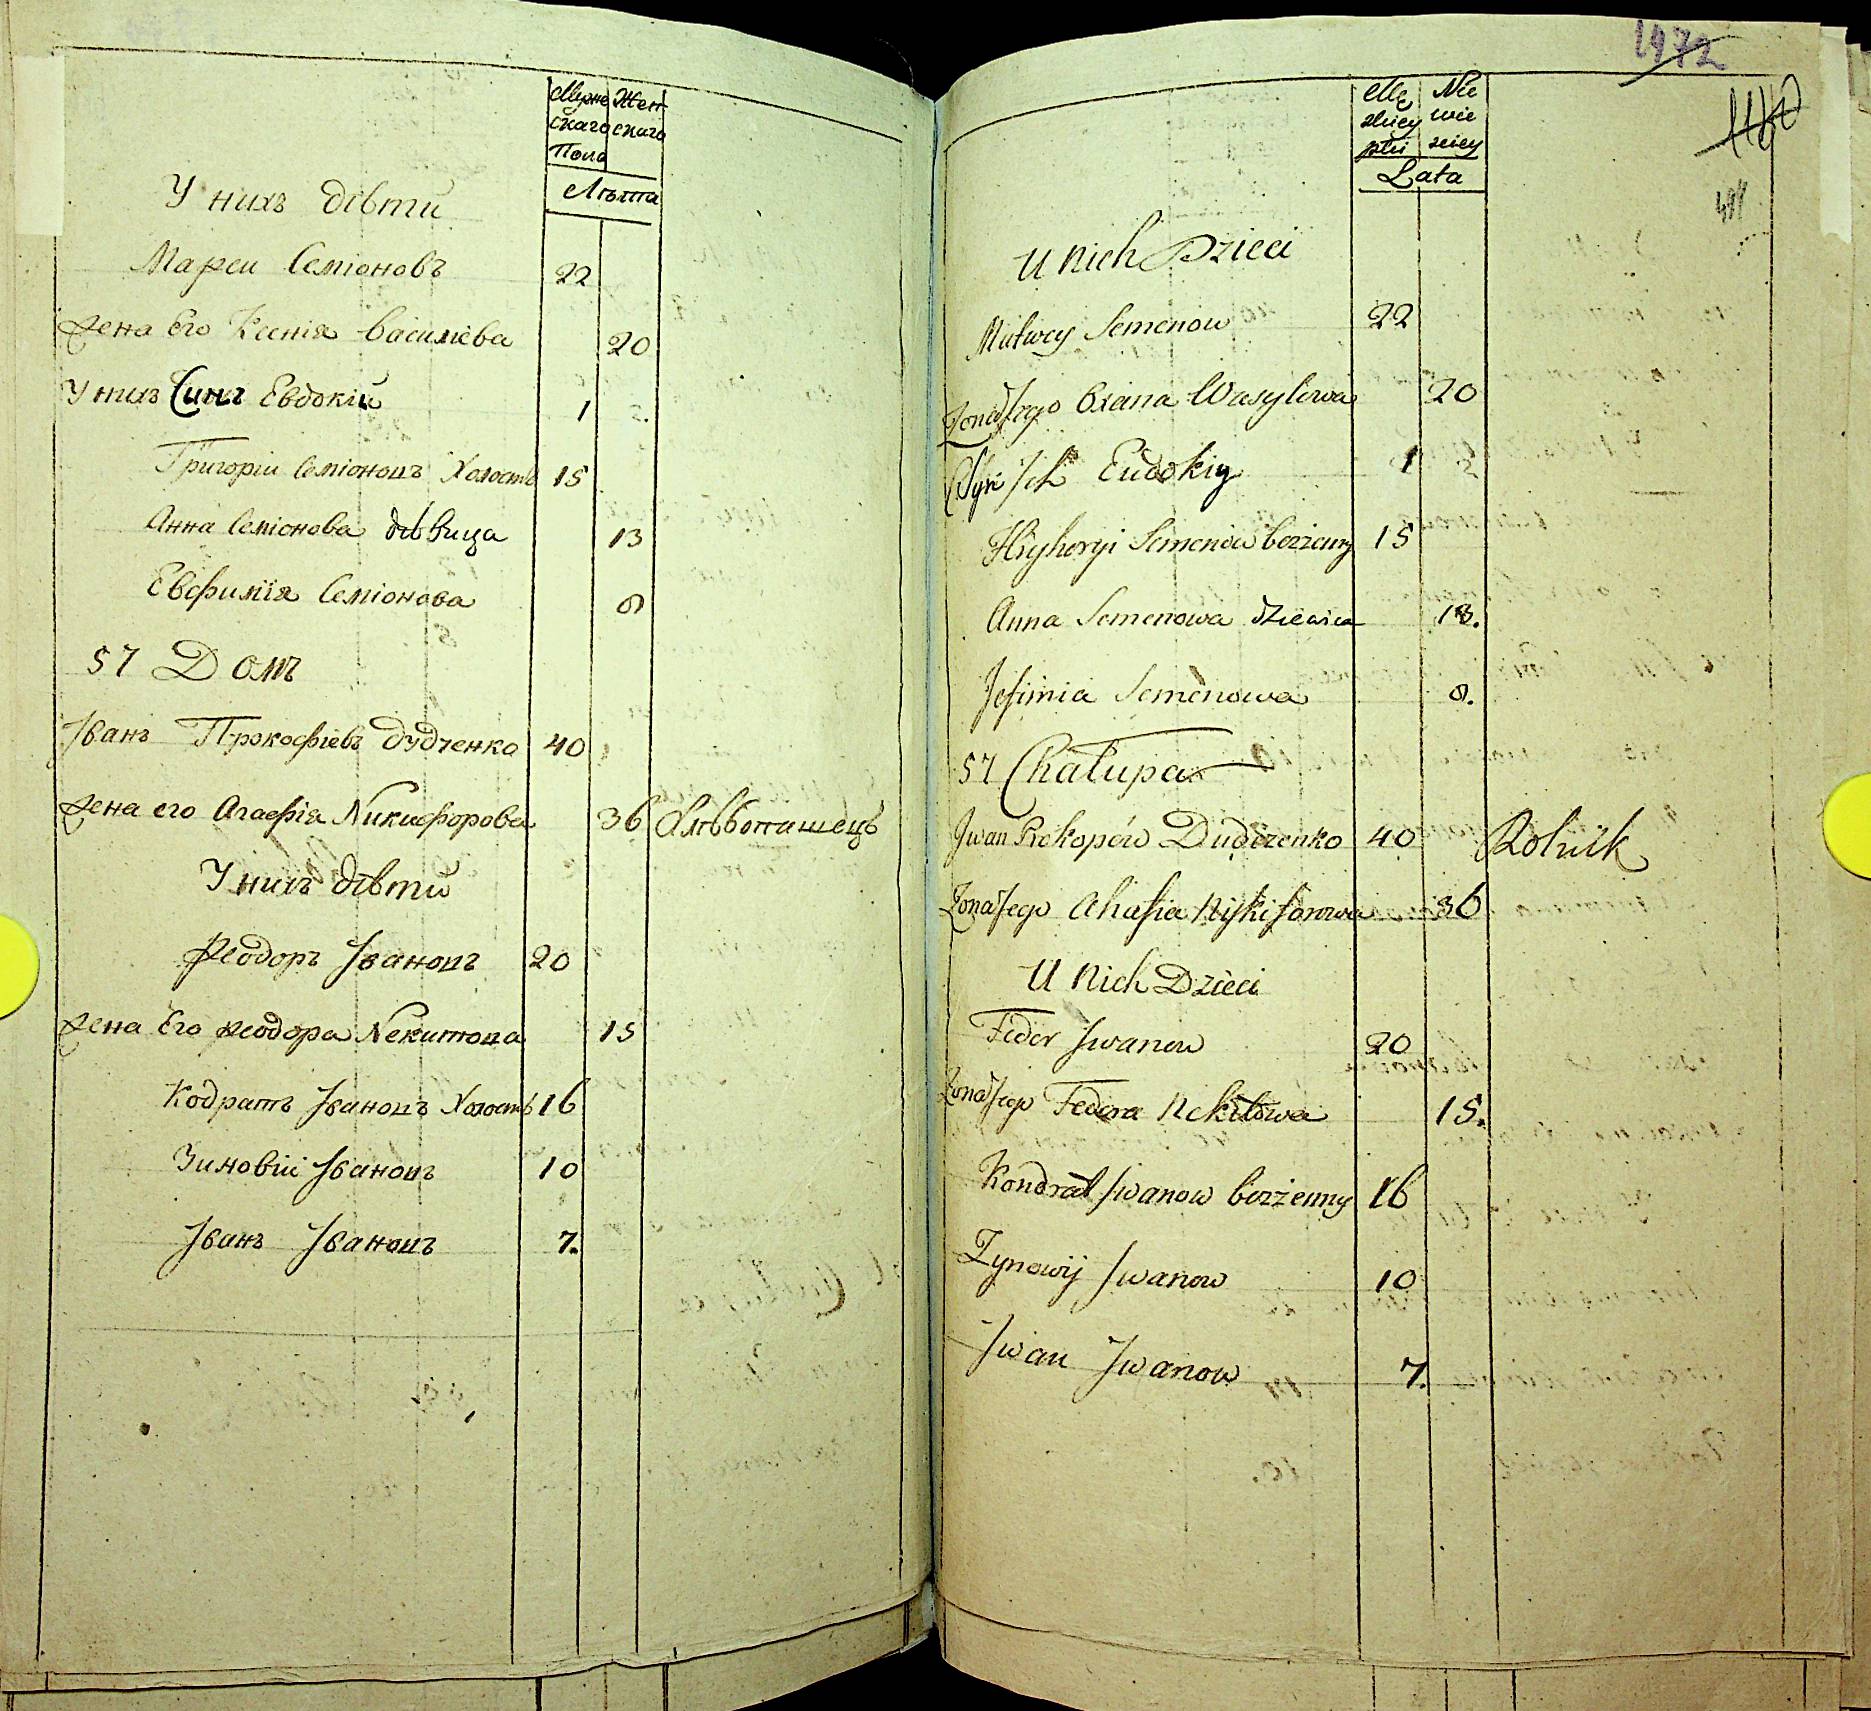 Мужескаго Пола
Женскаго
Лѣта
У нихъ дѣти
Марси Семіоновъ 22
жена Его Ксенія Василіева 20
У нихъ Синъ Евдокій 1
Григоріи Семіоновъ Холостъ 15
Анна Семіонова дѣвица 13
Евфимія Семіонова 8
57 Домъ
Іванъ Прокофіевъ Дудченко 40
жена его Агафія Никифорова 36 Хлѣбопашецъ
У нихъ дѣти
Феодоръ Івановъ 20
жена Его Феодора Некитова 15
Кодратъ Івановъ Холостъ 16
Зиновіи Івановъ 10
Іванъ Івановъ 7.
1972
1140
Męzkiey płci
Niewieściey
Lata
U Nich Dzieci
Matwey Semenow 22
Zona Jego Oxana Wasylowa 20
Syn Ich Eudokiy 1
Hryhoryi Semenow bezzenny 15
Anna Semenowa dziewica 13.
Jefimia Semenowa 8.
57 Chałupa
Jwan Prokopów Dudczenko 40 Rolnik
Zona Jego Ahafia Nykiforowa 36
U Nich Dzieci
Fedor Jwanow 20
Zona Jego Fedora Nekitowa 15.
Kondrat Jwanow bezzenny 16
Zynowij Jwanow 10
Jwan Jwanow 7.